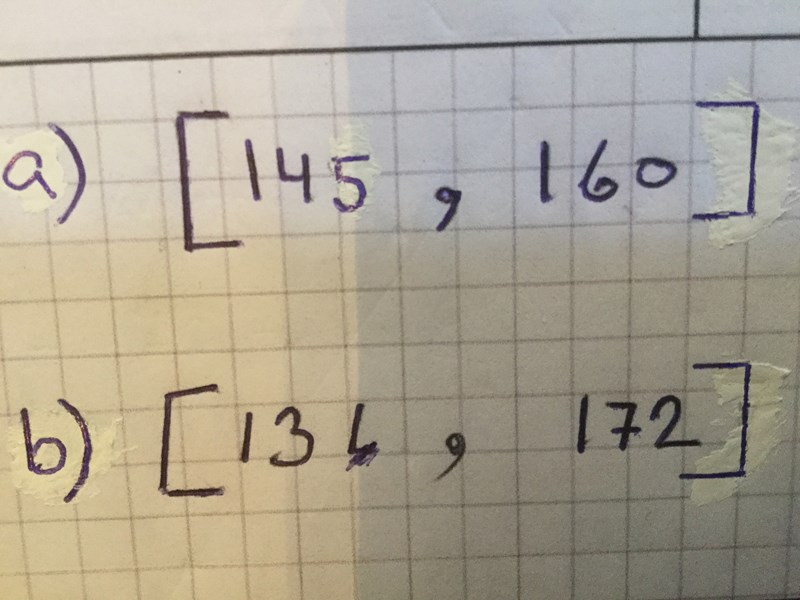 a) [145 , 160]
b) [136 , 172]